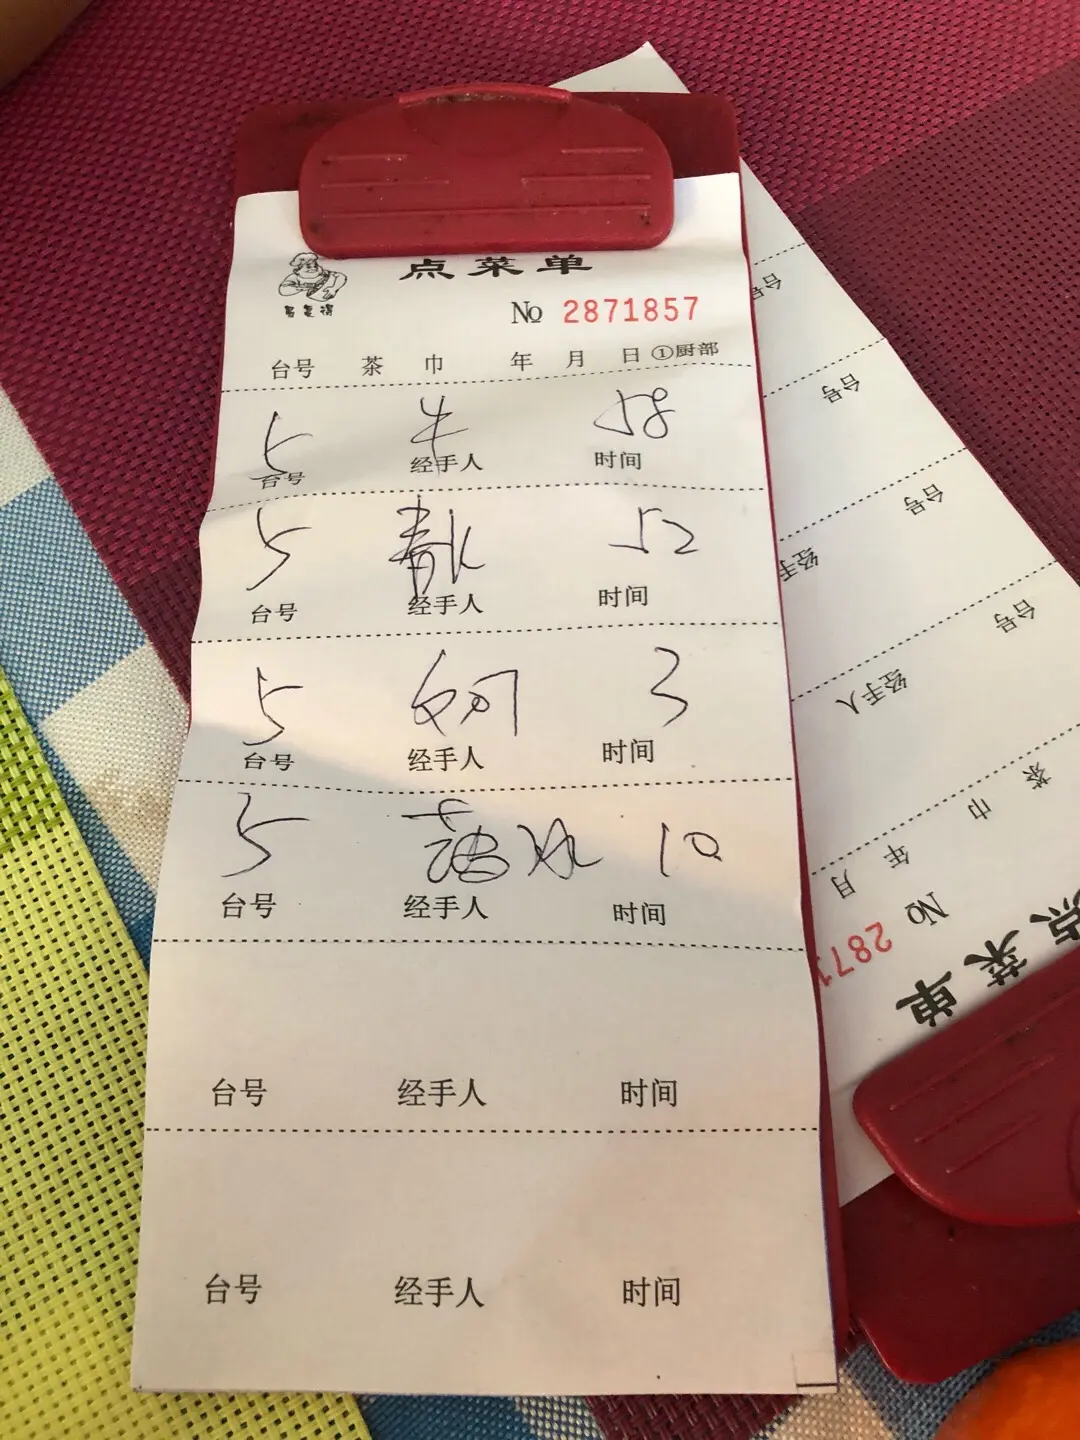 点菜单
№ 2871857
台号 茶 巾 年 月 日 ①厨部
5 牛 58
台号 经手人 时间
5 52
台号 经手人 时间
5 3
台号 经手人 时间
5 10
台号 经手人 时间
台号 经手人 时间
台号 经手人 时间
台号
台号
台号
经手
台号
经手人
茶
巾
年
月
№ 2871
点菜单